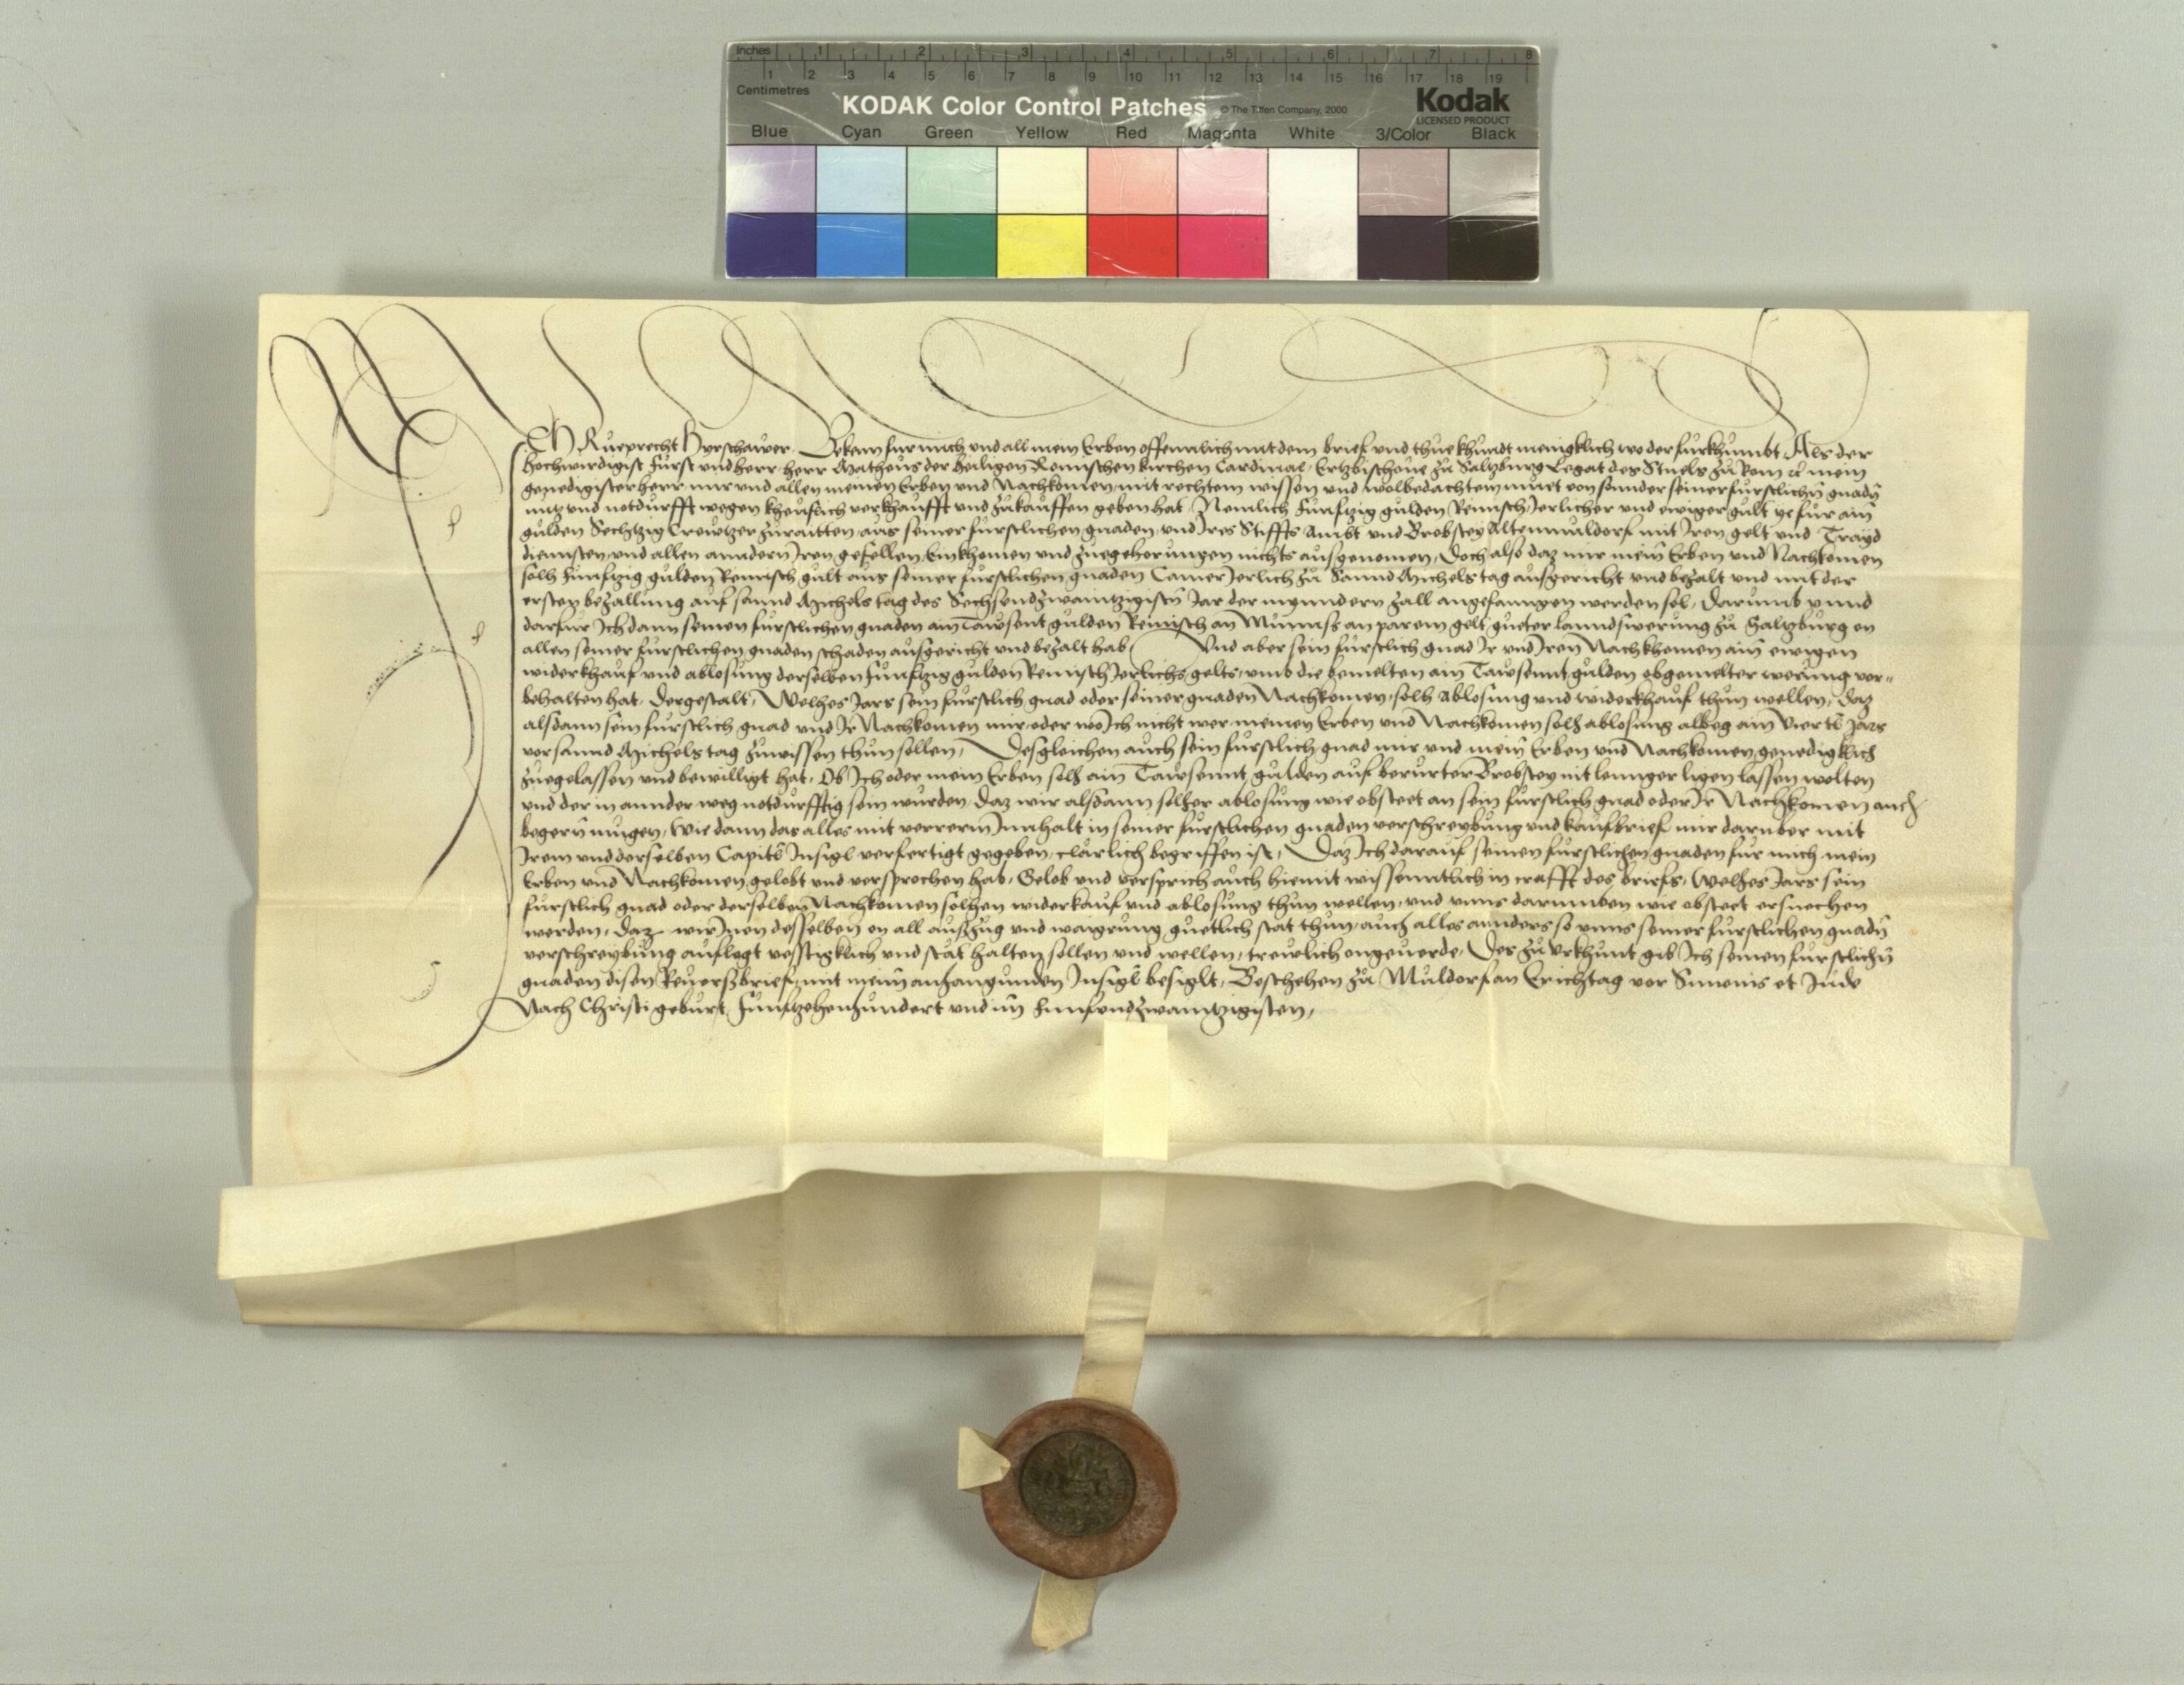 Inches 1 2 3 4 5 6 7 8
1 2 3 4 5 6 7 8 9 10 11 12 13 14 15 16 17 18 19
Centimetres
KODAK Color Control Patches © The Tiffen Company, 2000 Kodak
LICENSED PRODUCT
Blue Cyan Green Yellow Red Magenta White 3/Color Black
ICH Rueprecht Hyrschawer. Bekenn fur mich und all mein Erben offennlich mit dem brief und thue khundt menigklich wo der furkhumbt Als der
hochwirdigist Furst und herr herr Matheus der heiligen Romischen kirchen Cardinal Ertzbischove zu Saltzburg Legat des Stuels zu Rom etc mein
genedigister herr mir und allen meinen Erben und Nachkomen, mit rechtem wissen und wolbedachtem muet von sonder seiner furstlichn gnadn
nutz und notdurfft wegen kheuflich verkhaufft und zukauffen geben hat, Nemlich Funfftzig gulden Reinisch Jerlicher und ewiger gult ye fur ain
gulden Sechtzig Creutzer zuraitten aus seiner furstlichen gnaden und Jres Stiffts Ambt und Brobstey Altenmuldorf mit Jren gelt und Trayd
diennsten und allen anndern Jren gefellen, Einkhomen und zuegehorungen nichts ausgenomen, Doch also daz mir mein Erben und Nachkomen
solh Funfftzig gulden Reinisch gult aus seiner furstlichen gnaden Camer Jerlich zu Sannd Michels tag ausgericht und bezalt und mit der
ersten bezallung auf sannd Michels tag des Sechsundzwaintzigistn Jar der mynndern zall angefanngen werden sol, Darumb unnd
darfur Jch dann seinen furstlichen gnaden ain Tausent gulden Reinisch an Munnss an parem gelt, gueter lanndswerung zu Saltzburg on
allen seiner furstlichen gnaden schaden ausgericht und bezalt hab Und aber sein furstlich gnad Jr und Jren Nachkhomen ain ewigen
widerkhauf und ablosung derselben Funfftzig gulden Reinisch Jerlichs gelts, umb die bemelten ain Tausennt gulden obgemelter werung vor-
behalten hat, Dergestalt, Welhes Jars sein furstlich gnad oder seiner gnaden Nachkomen, solh ablosung und widerkhauf thun wellen, Daz
alsdann sein furstlich gnad und Jr Nachkomen mir oder wo Jch nicht wer meinen Erben und Nachkomen solh ablosung albeg ain Viertl Jars
vor sannd Michels tag zuwissen thun sollen, Desgleichen auch sein furstlich gnad mir und mein Erben und Nachkomen genedigklich
zuegelassen und bewilligt hat, Ob Jch oder mein Erben solh ain Tausennt gulden auf berurter Brobstey nit lennger ligen lassen wolten
und der in annder weg notdurfftig sein wurden, Daz wir alsdann solher ablosung wie obsteet an sein furstlich gnad oder Jr Nachkomen auch
begern mugen, Wie dann das alles mit verrerm Jnnhalt in seiner furstlichen gnaden verschreybung und kaufbrief mir daruber mit
Jrem und derselben Capitl Jnsigl verfertigt gegeben, clarlich begriffen ist, Daz Jch darauf seinen furstlichen gnaden fur mich mein
Erben und Nachkomen gelobt und versprochen hab, Gelob und versprich auch hiemit wissenntlich in crafft des briefs, Welhes Jars sein
furstlich gnad oder derselben Nachkomen solhen widerkauf und ablosung thun wellen, und unns darumben wie obsteet ersuechen
werden, Daz wir Jnen desselben on all auszug und waigrung guetlich stat thun, auch alles annders so unns seiner furstlichen gnadn
verschreybung auflegt vesstigklich und stat halten sollen und wellen, trewlich ongeverde, Des zu Urkhunt gib Jch seinen furstlichn
gnaden disen Reversbrief mit meinn anhangunden Jnsigl besiglt, Beschehen zu Muldorf an Erichtag vor Simonis et Jude
Nach Christi geburt Funfftzehenhundert und im Funfundzwaintzigisten,